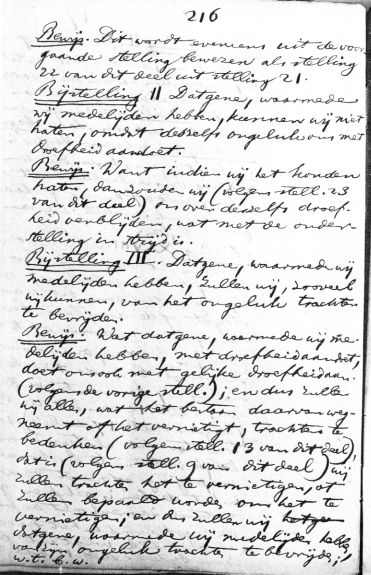 216
Bewijs. Dit wordt eveneens uit de voor-
gaande stelling bewezen als stelling
22 van dit deel uit stelling 21.
Bijstelling II Datgene, waarmede
wij medelijden hebben, kunnen wij niet
haten, omdat deszelfs ongeluk ons met
droefheid aandoet.
Bewijs. Want indien wij het konden
haten, dan zouden wij (volgens stell. 23
van dit deel) ons over deszelfs droef-
heid verblijden, wat met de onder-
stelling in strijd is.
Bijstelling III. Datgene, waarmede wij
medelijden hebben, zullen wij, zooveel
wij kunnen, van het ongeluk trachten
te bevrijden.
Bewijs. Wat datgene, waarmede wij me-
delijden hebben, met droefheid aandoet,
doet ons ook met gelijke droefheid aan
(volgens de vorige stell.); en dus zullen
wij alles, wat het bestaan daarvan weg-
neemt of het vernietigt, trachten te
bedenken (volgens stell. 13 van dit deel),
dat is (volgens stell. 9 van dit deel) wij
zullen trachten het te vernietigen, of
zullen bepaald worden om het te
vernietigen; en dus zullen wij
datgene, waarmede wij medelijden hebben,
van zijn ongeluk trachten te bevrijden;
w.t.b.w.